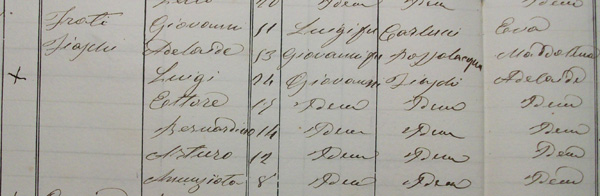 Idem Idem
Frati Giovanni 51 Luigi fu Carlucci Eva
Adelaide 53 Giovanni fu Maddalena
x Luigi 24 Giovanni Adelaide
Ettore 15 Idem Idem Idem
Bernardino 14 Idem Idem Idem
Arturo 12 Idem Idem Idem
Annunziata 8 Idem Idem Idem